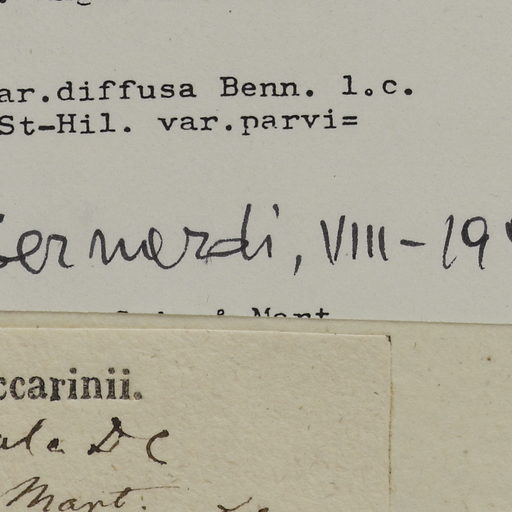 ar.diffusa Benn. l.c.
St-Hil. var.parvi=
Bernardi, VIII-19
& Mart
ccarinii.
ula DC
Mart.